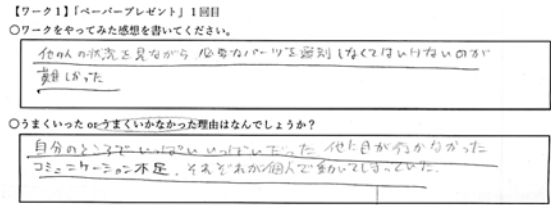 【ワーク1】「ペーパープレゼント」1回目
○ワークをやってみた感想を書いてください。
他の人の状況を見ながら 必要なパーツを選別しなくてはいけないのが
難しかった
○うまくいった orうまくいかなかった理由はなんでしょうか?
自分のところでいっぱいいっぱいだった 他に目が行かなかった
コミュニケーション不足、それぞれが個人で動いてしまっていた.